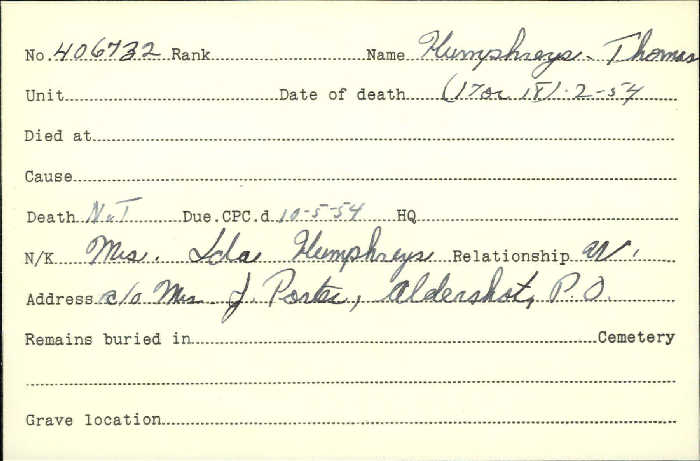 No. 406732 Rank Name Humphreys - Thomas
Unit Date of death (17 or 18) . 2 - 54
Died at
Cause
Death N.T Due.CPC.d 10-5-54 HQ
N/K Mrs. Ida Humphreys Relationship W.
Address c/o Mrs J. Porter, Aldershot, P.O.
Remains buried in Cemetery
Grave location